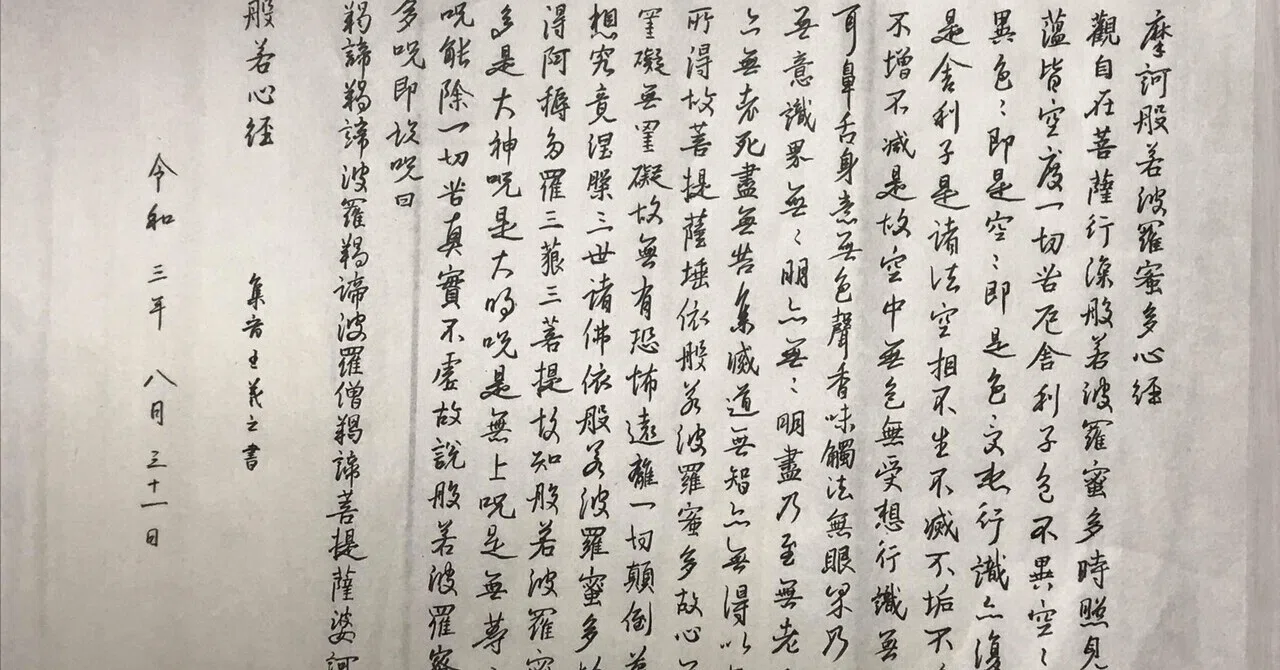 摩訶般若波羅蜜多心經
觀自在菩薩行深般若波羅蜜多時照見
蘊皆空度一切苦厄舍利子色不異空〻
異色〻即是空〻即是色受想行識亦復
是舍利子是諸法空相不生不滅不垢不
不增不減是故空中無色無受想行識無
耳鼻舌身意無色聲香味觸法無眼界乃
無意識界無〻明亦無〻明盡乃至無老
亦無老死盡無苦集滅道無智亦無得以
所得故菩提薩埵依般若波羅蜜多故心
罣礙無罣礙故無有恐怖遠離一切顛倒
想究竟涅槃三世諸佛依般若波羅蜜多
得阿耨多羅三藐三菩提故知般若波羅蜜
多是大神呪是大明呪是無上呪是無等
呪能除一切苦真實不虛故說般若波羅蜜
多呪即說呪曰
羯諦羯諦波羅羯諦波羅僧羯諦菩提薩婆訶
般若心經
集字王羲之書
令和三年八月三十一日